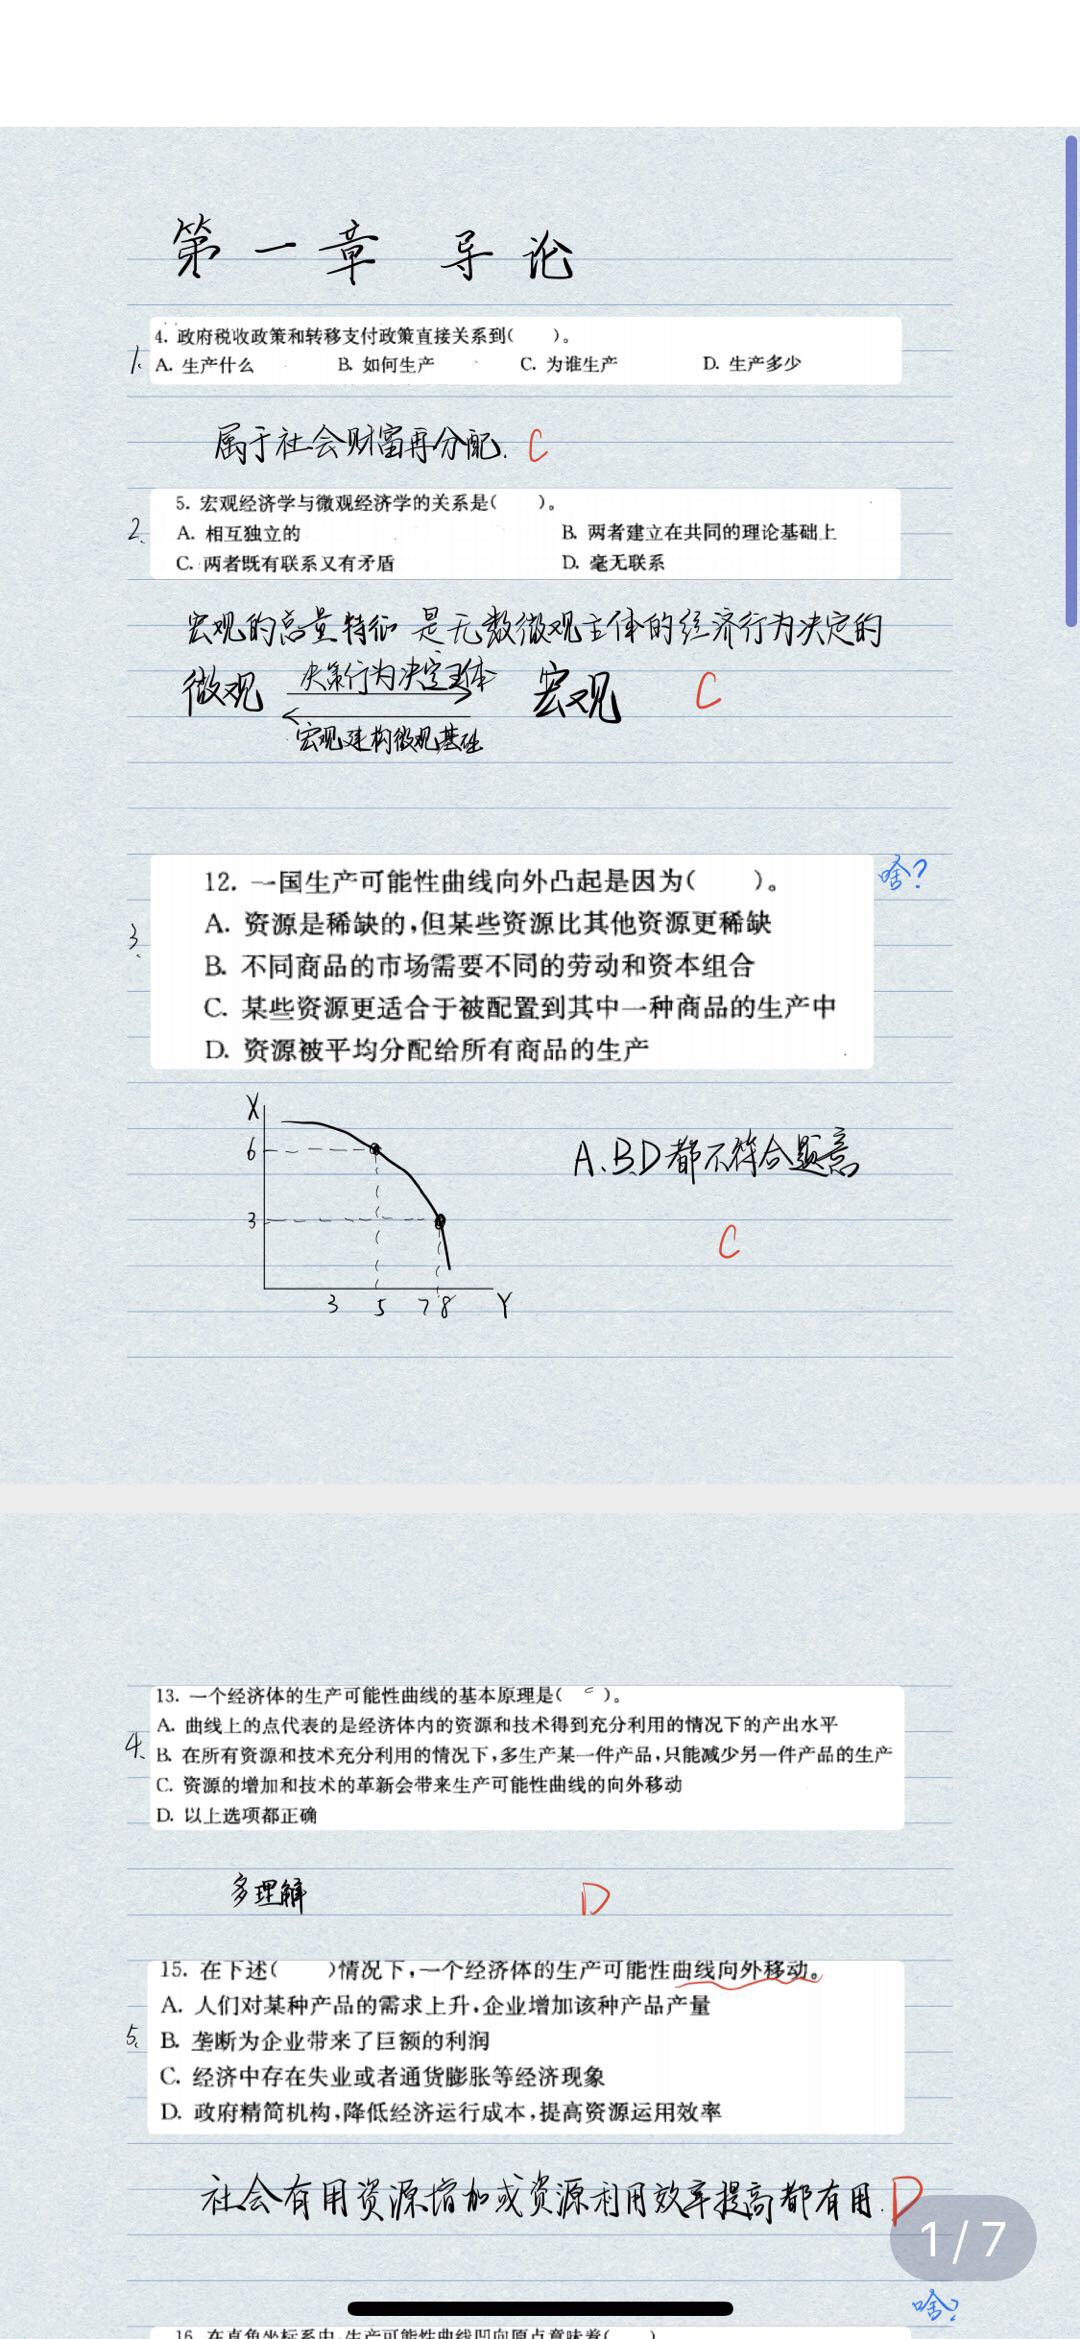 第一章 导论
1.
4. 政府税收政策和转移支付政策直接关系到( )。
A. 生产什么 B. 如何生产 C. 为谁生产 D. 生产多少
属于社会财富再分配. C
2.
5. 宏观经济学与微观经济学的关系是( )。
A. 相互独立的 B. 两者建立在共同的理论基础上
C. 两者既有联系又有矛盾 D. 毫无联系
宏观的总量特征是无数微观主体的经济行为决定的
决策行为决定主体
微观 宏观 C
宏观建构微观基础
啥?
3.
12. 一国生产可能性曲线向外凸起是因为( )。
A. 资源是稀缺的,但某些资源比其他资源更稀缺
B. 不同商品的市场需要不同的劳动和资本组合
C. 某些资源更适合于被配置到其中一种商品的生产中
D. 资源被平均分配给所有商品的生产
X
6
3
3 5 7 8 Y
A、B、D都不符合题意
C
4.
13. 一个经济体的生产可能性曲线的基本原理是( c )。
A. 曲线上的点代表的是经济体内的资源和技术得到充分利用的情况下的产出水平
B. 在所有资源和技术充分利用的情况下,多生产某一件产品,只能减少另一件产品的生产
C. 资源的增加和技术的革新会带来生产可能性曲线的向外移动
D. 以上选项都正确
多理解 D
5.
15. 在下述( )情况下,一个经济体的生产可能性曲线向外移动。
A. 人们对某种产品的需求上升,企业增加该种产品产量
B. 垄断为企业带来了巨额的利润
C. 经济中存在失业或者通货膨胀等经济现象
D. 政府精简机构,降低经济运行成本,提高资源运用效率
社会有用资源增加或资源利用效率提高都有用. D
1/7
啥?
16. 在直角坐标系中,生产可能性曲线凹向原点意味着( )